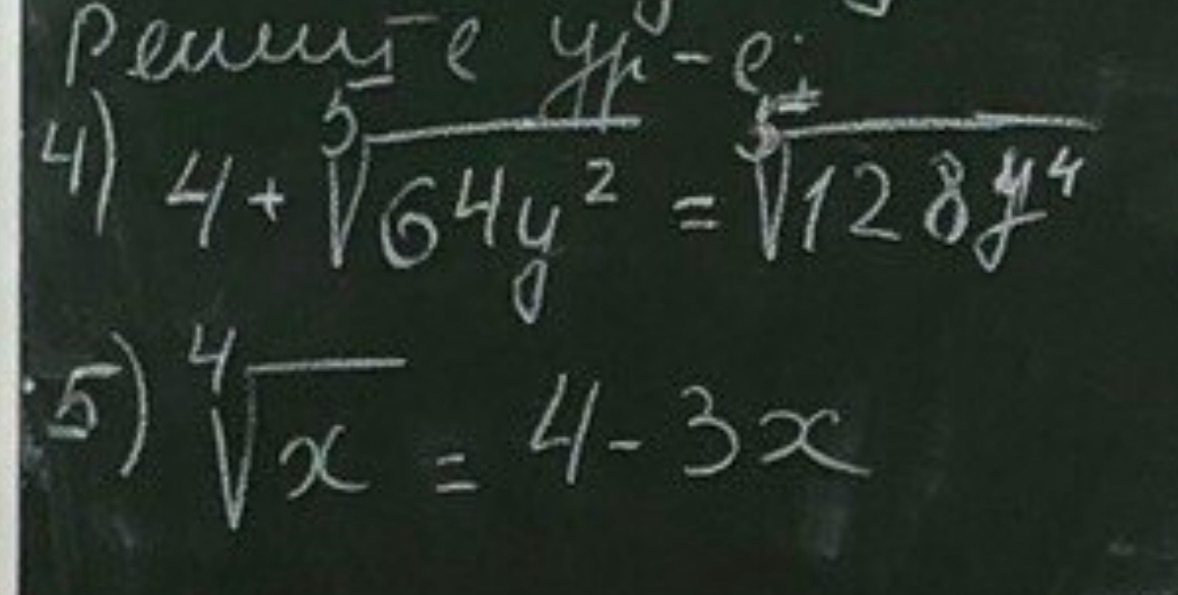 Решите ур-е:
4) 4 + ⁵√64y² = ⁵√128y⁴
5) ⁴√x = 4 - 3x